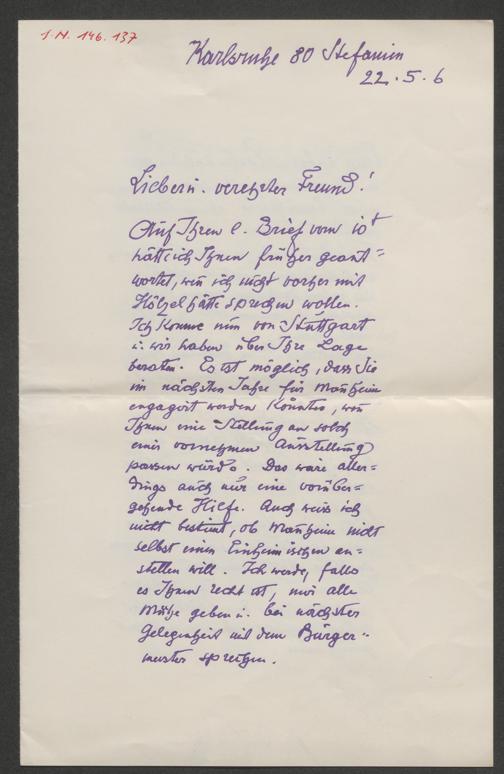 J.N. 146.137
Karlsruhe 80 Stefanien
22.5.6
Lieber u. verehrter Freund!
Auf Ihren l. Brief vom 10t
hätte ich Ihnen früher geant=
wortet, wen ich nicht vorher mit
Hölzel hätte sprechen wollen.
Ich komme nun von Stuttgart
u. wir haben über Ihre Lage
beraten. Es ist möglich, dass Sie
im nächsten Jahre für Manheim
engagirt werden könnten, wen
Ihnen eine Stellung an solch
einer vornehmen Ausstellung
passen würde. Das wäre aller=
dings auch nur eine vorüber=
gehende Hilfe. Auch weiss ich
nicht bestimt, ob Manheim nicht
selbst einen Einheimischen an=
stellen will. Ich werde, falls
es Ihnen recht ist, mir alle
Mühe geben u. bei nächster
Gelegenheit mit dem Bürger=
meister sprechen.